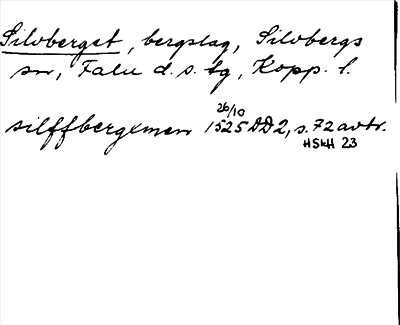 Silvberget, bergslag, Silvbergs
sn, Falu d. s. tg, Kopp. l.
26/10
silffbergxmen 1525 DD2, s. 72 avtr.
HSkH 23